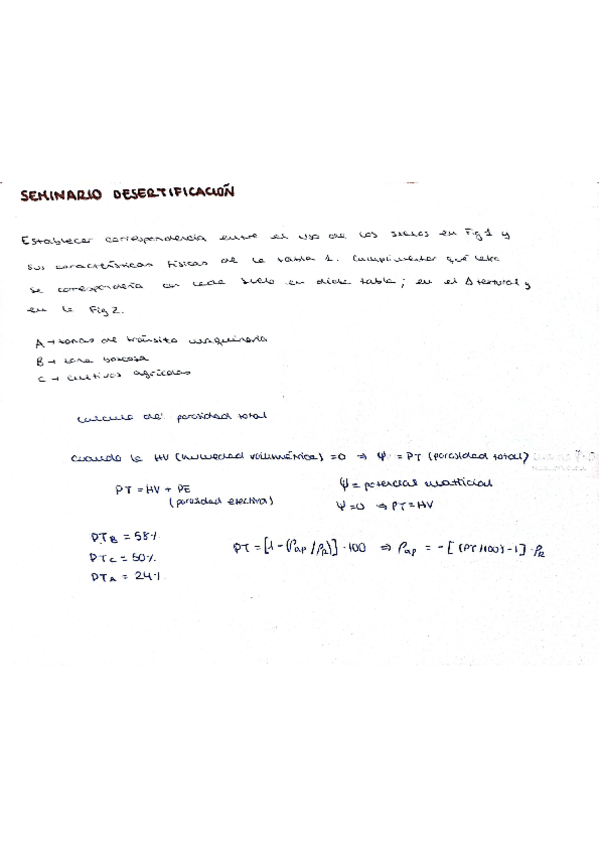 SEMINARIO DESERTIFICACIÓN
Establecer correspondencia entre el uso de los suelos en Fig 1 y
sus características físicas de la tabla 1. Cumplimentar qué letra
se correspondería con cada suelo en dicha tabla; en el Δ textural y
en la Fig 2.
A → zonas de tránsito maquinaria
B → zona boscosa
C → cultivos agrícolas
Calculo de: porosidad total
Cuando la HV (humedad volumétrica) = 0 ⇒ Ψ = PT (porosidad total)
PT = HV + PE
(porosidad efectiva)
Ψ = potencial matricial
Ψ = 0 ⇒ PT = HV
PT_B = 58%
PT_C = 50%
PT_A = 24%
PT = [1 - (ρ_ap / ρ_R)] · 100 ⇒ ρ_ap = - [(PT/100) - 1] · ρ_R